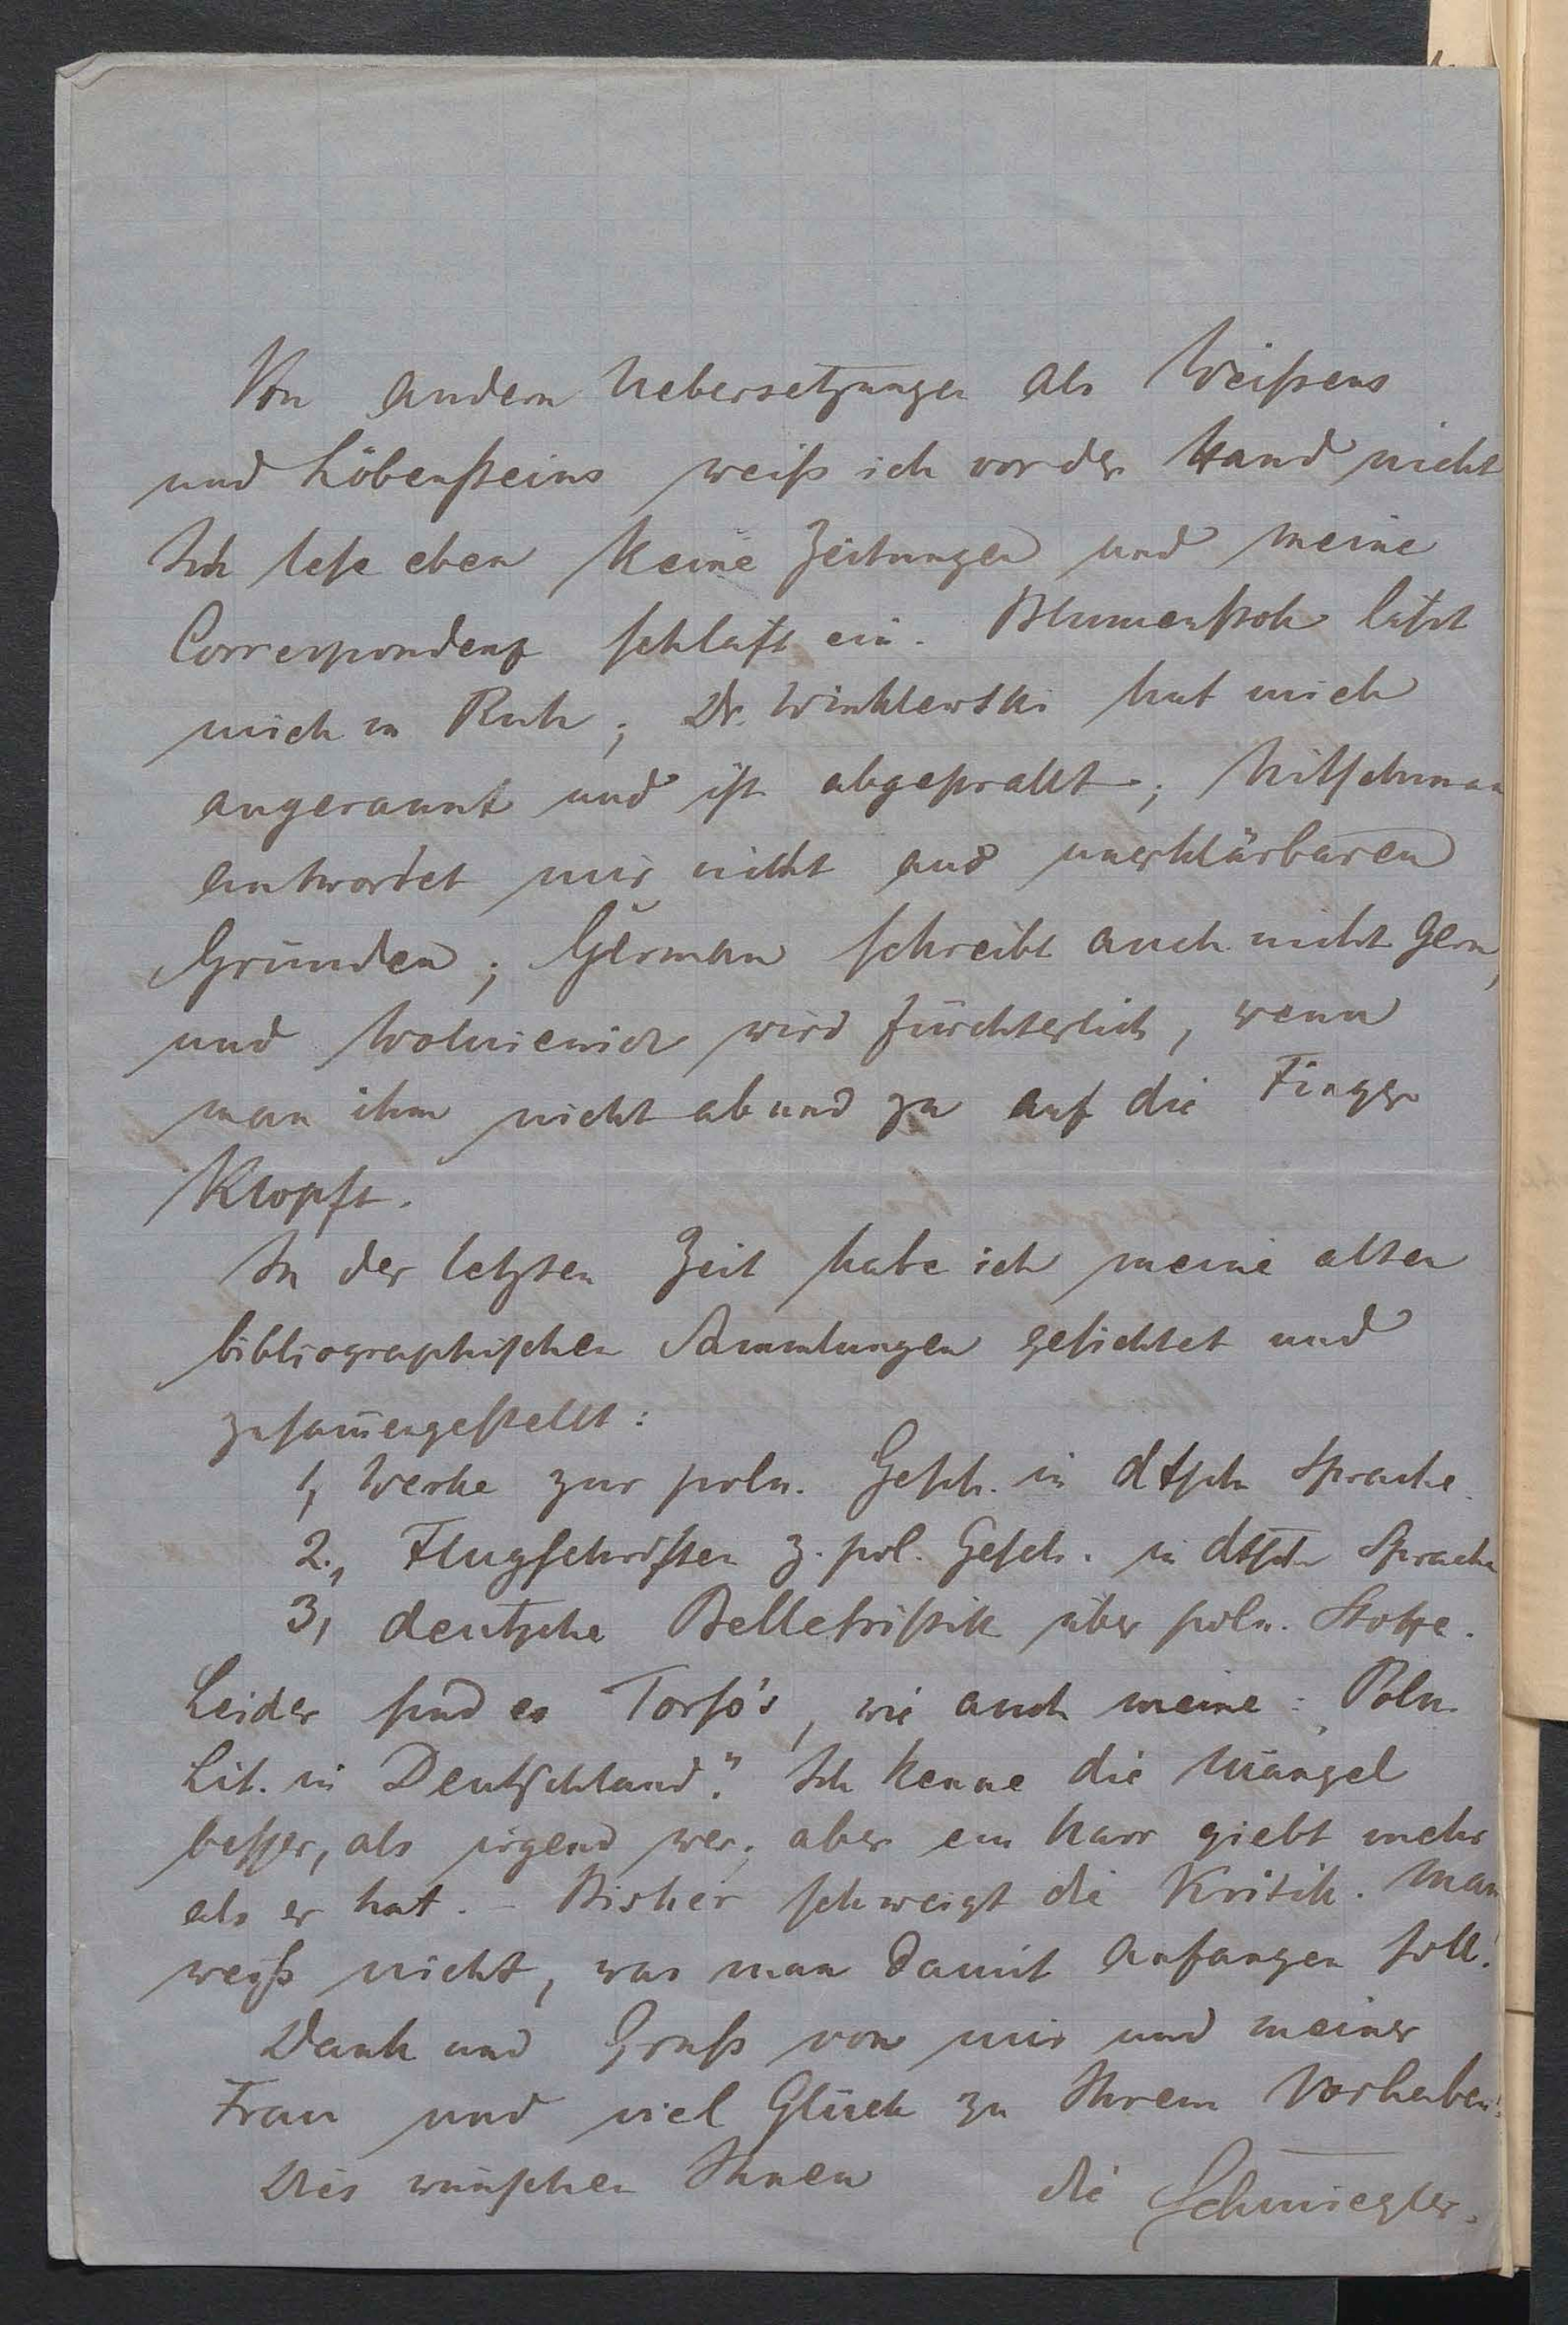 Von andern Uebersetzungen als Weißens
und Löbensteins weiß ich vor der Hand nicht
Ich lese eben keine Zeitungen und meine
Correspondenz schläft ein. Blumenstok läßt
mich in Ruh; Dr. Winklewski hat mich
angerannt und ist abgeprallt; Nitschman
antwortet mir nicht aus unerklärbaren
Gründen; German schreibt auch nicht gern,
und Wolniewicz wird fürchterlich, wenn
man ihm nicht ab und zu auf die Finger
klopft.
In der letzten Zeit habe ich meine alten
bibliographischen Sammlungen gesichtet und
zusam̄engestellt:
1, Werke zur poln. Gesch. in dtsch Sprache.
2., Flugschriften z. pol. Gesch. in dtsch Sprache
3, deutsche Belletristik über poln. Stoffe.
Leider sind es Torso's, wie auch meine: "Poln.
Lit. in Deutschland." Ich kenne die Mängel
besser, als irgend wer; aber ein Narr giebt mehr
als er hat. - Bisher schweigt die Kritik. Man
weiß nicht, was man damit anfangen soll!
Dank und Gruß von mir und meiner
Frau und viel Glück zu Ihrem Vorhaben!
Dies wünschen Ihnen die Schmiegler.